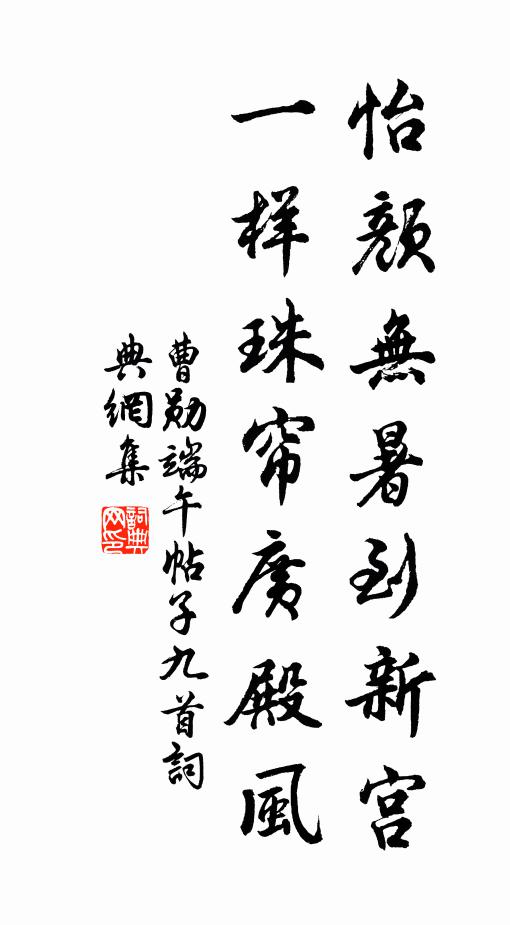 怡顏無暑到新宮
一样珠帘廣殿風
曹勛端午帖子九首詞
典網集
詞典网印